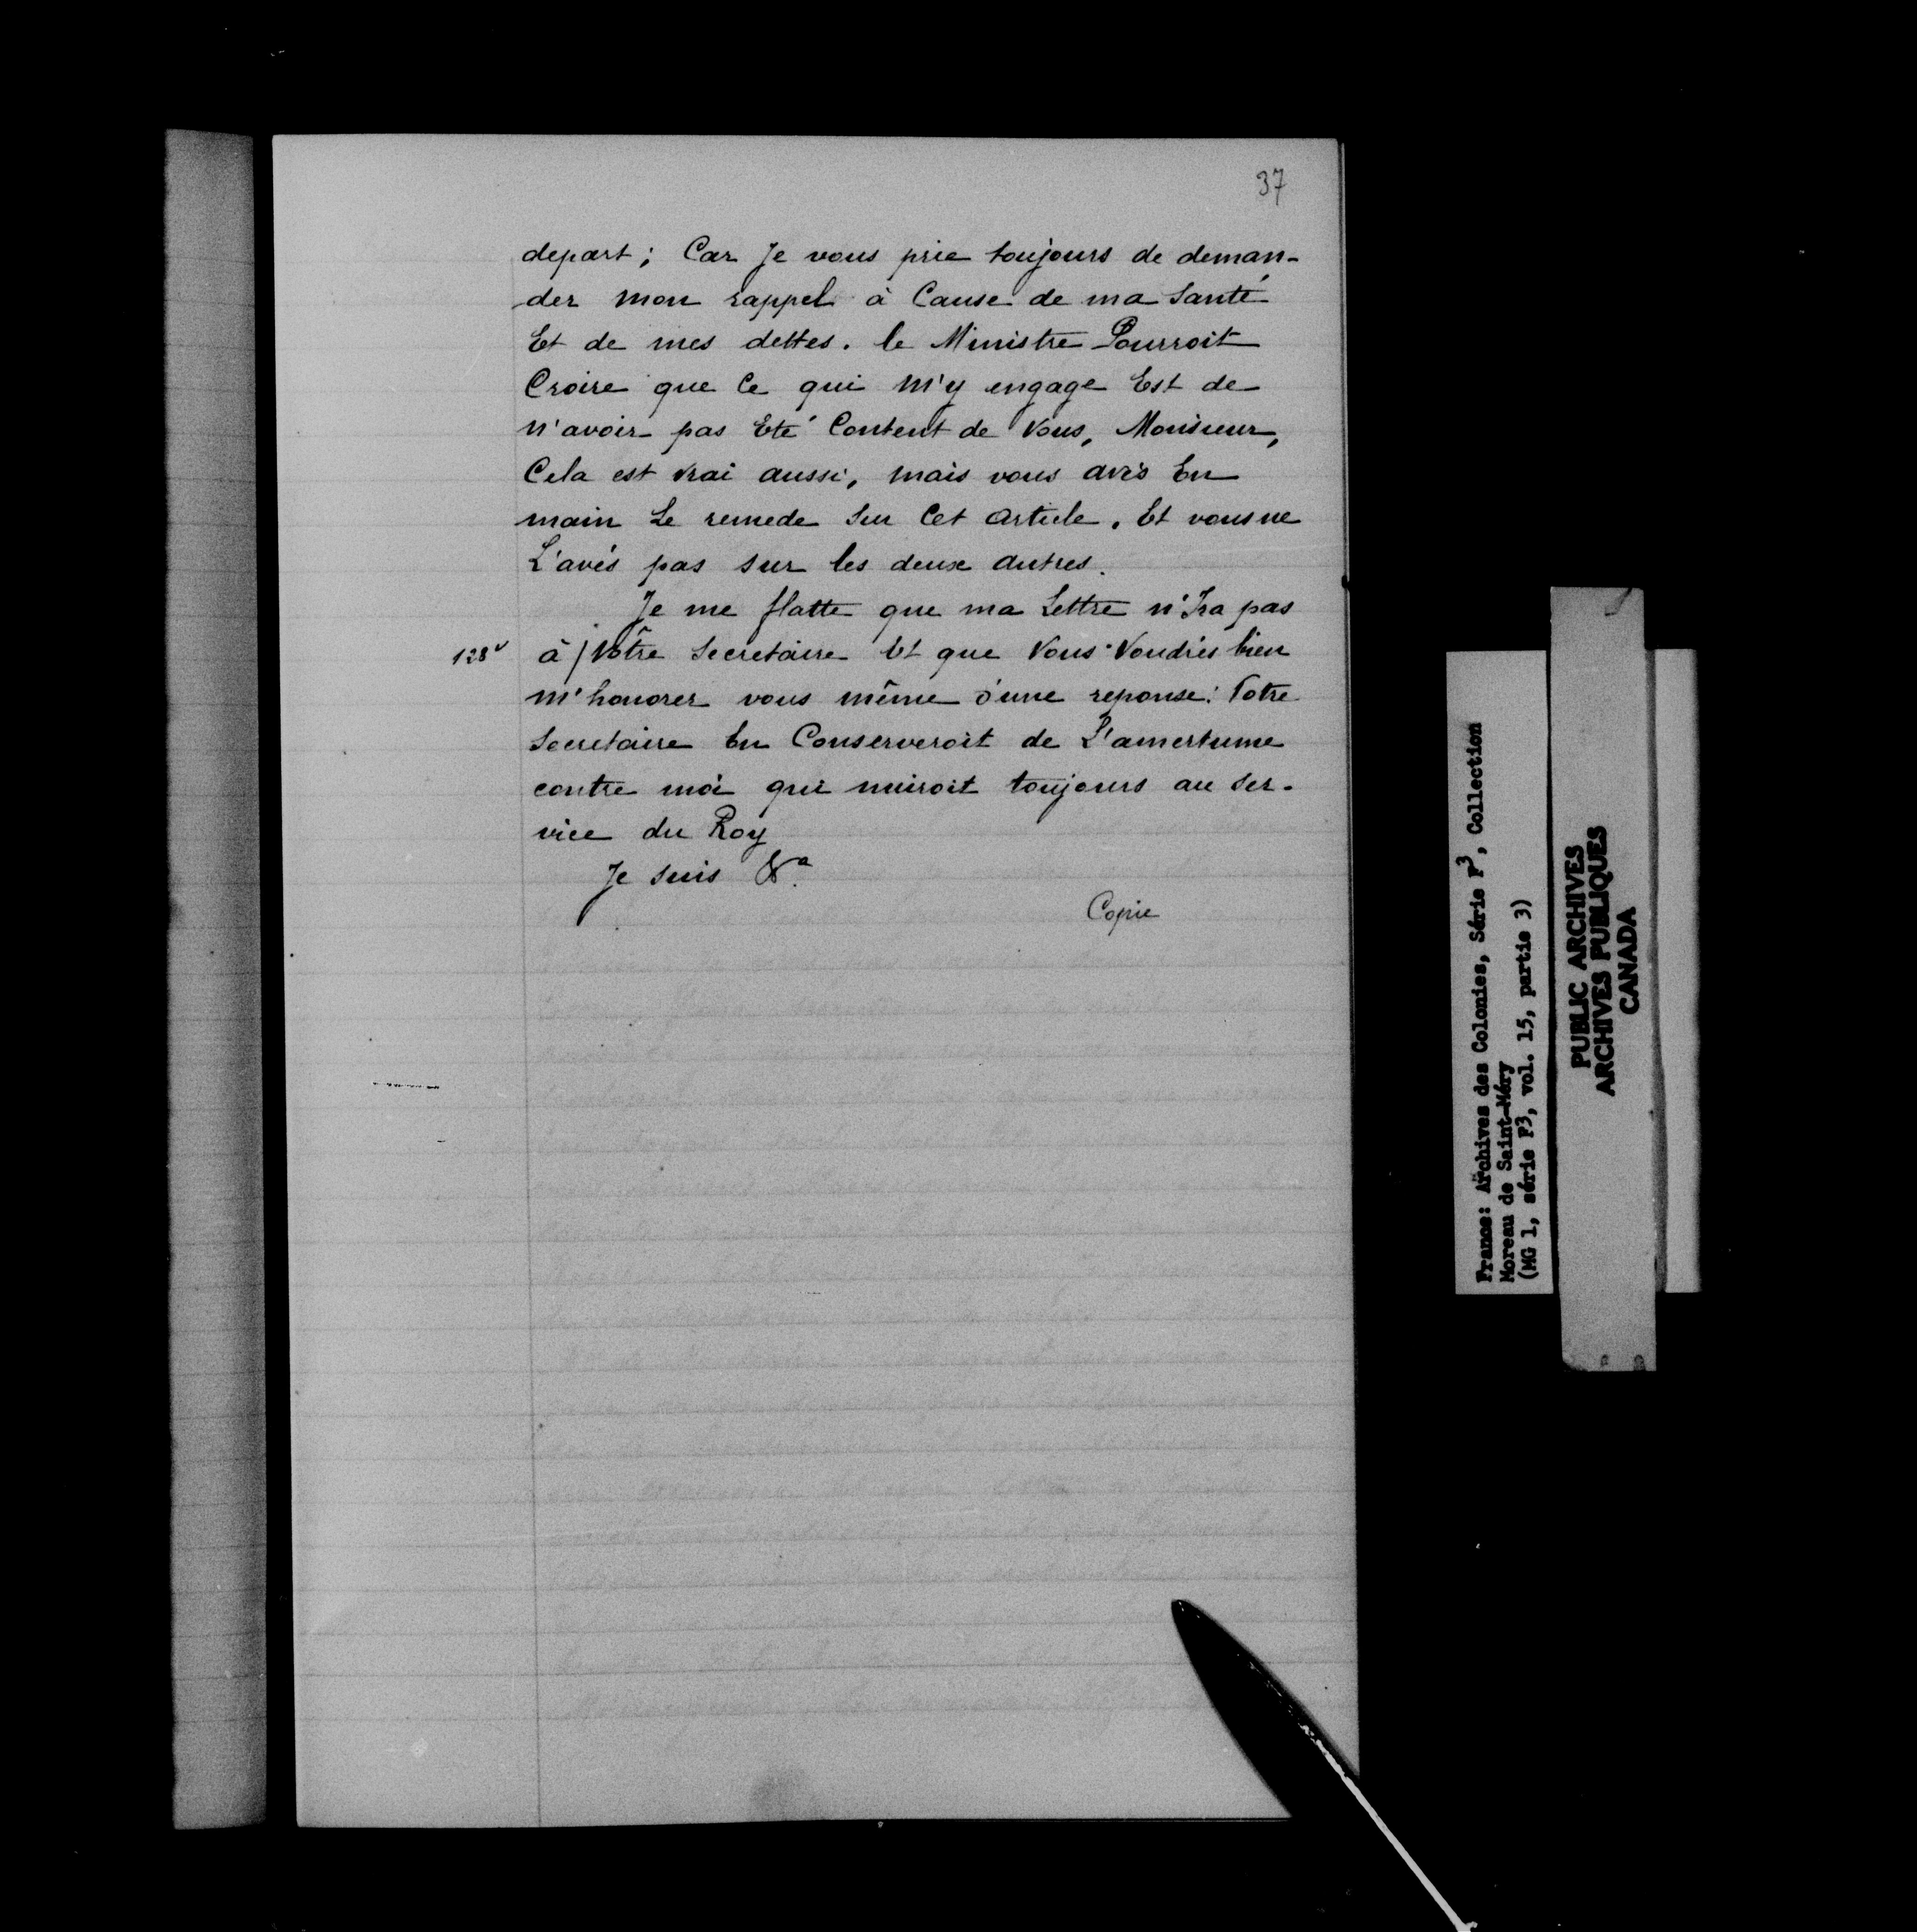 37
depart; Car Je vous prie toujours de deman-
der mon rappel à Cause de ma Santé
Et de mes dettes. le Ministre Pourroit
Croire que Ce qui m'y engage Est de
n'avoir pas Eté Content de Vous, Monsieur,
Cela est vrai aussi, mais vous avés En
main Le remede Sur Cet Article. Et vous ne
L'avés pas sur les deux autres.
Je me flatte que ma Lettre n'Ira pas
128v à / Vôtre Secretaire Et que Vous Voudrés bien
m'honorer vous même d'une reponse: Votre
Secretaire En Conserveroit de L'amertume
contre moi qui nuiroit toujours au Ser-
vice du Roy
Je suis &a.
Copie
France: Archives des Colonies, Série F3, Collection
Moreau de Saint-Méry
(MG 1, série F3, vol. 15, partie 3)
PUBLIC ARCHIVES
ARCHIVES PUBLIQUES
CANADA